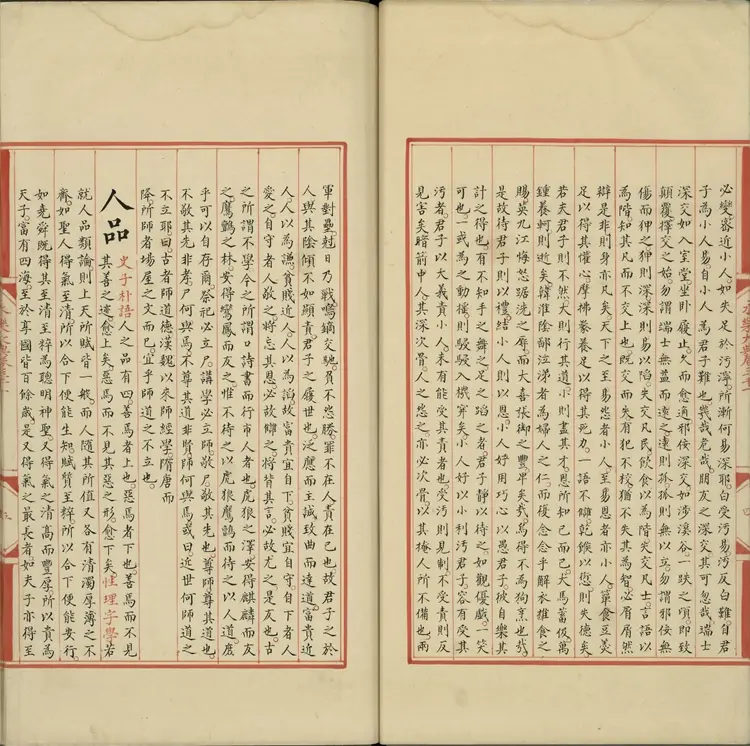 必變容近小人如失足於污濘所漸何易深耶受污易反白難自君
子為小人易自小人為君子難也幾哉危哉朋友之深交其可忽哉端士
深交如入室堂坐臥履止久而愈適邪佞深交如涉溪谷一跌之頃即致
顛覆擇交之始勿謂端士無益而遠之遠則孤孤則無以立勿謂邪佞無
傷而狎之狎則深深則易以陷失交凡民飲食以為階失交凡士言語以
為階知其凡而不交上也既交而失有犯不校猶不失其為智必屑屑然
辯是非則身亦凡矣天下之至易怨者小人至易恩者亦小人簞食豆羹
足以得其懽心摩拂豢養足以得其死力一語不酬乾餱以愆則失德矣
若夫君子則不然大則行其道小則盡其才恩所知己而已犬馬蓄伋萬
鍾養軻則逝矣韓淮陰鄙泣涕者為婦人之仁而復念念乎解衣推食之
賜英九江悔怒踞洗之辱而大喜張御之豐卑矣哉烏得不為狗烹也哉
是故待君子則以禮結小人則以恩小人好用巧心以愚君子彼自樂其
計之得也有不知手之舞之足之蹈之者君子靜以待之如觀優戲一笑
可也一或為之動搖則駸駸入機穽矣小人好以小利污君子容有受其
污者君子以大義責小人未有能受責者也受污則見制不受責則反
見害矣暗箭中人其深次骨人之怨之亦必次骨以其掩人所不備也兩
軍對壘尅日乃戰鳴鏑交馳負不忿勝罪不在人責在己也故君子之於
人與其陰傾不如顯責君子之履世也泛應而主誠致曲而達道富貴近
人人以為謙貧賤近人人以為謟故富貴宜自下貧賤宜自守自下者人
愛之自守者人敬之將忘其恩必故讎之將背其言必故尤之是友也古
之所謂不學今之所謂口詩書而行市人者也虎狼之澤安得麒麟而友
之鷹鸇之林安得鸞鳳而友之惟不待之以虎狼鷹鸇而待之以人道庶
乎可以自存爾祭祀必立尸講學必立師敬尸敬其先也尊師尊其道也
不敬其先非孝尸何與焉不尊其道非賢師何與焉或曰近世何師道之
不立耶曰古者師道德漢魏以來師經學隋唐而
降所師者場屋之文而已宜乎師道之不立也
人品
史子朴語人之品有四善焉者上也惡焉者下也善焉而不見
其善之迹愈上矣惡焉而不見其惡之形愈下矣性理字學若
就人品類論則上天所賦皆一般而人隨其所值又各有清濁厚薄之不
齊如聖人得氣至清所以合下便能生知賦質至粹所以合下便能安行
如堯舜既得其至清至粹為聰明神聖又得氣之清高而豐厚所以貴為
天子富有四海至於享國皆百餘歲是又得氣之最長者如夫子亦得至